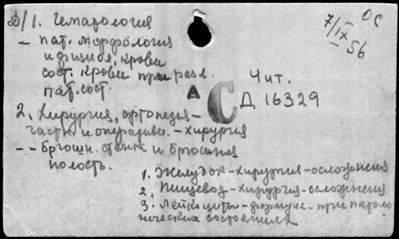 Д/1. Гематология
ОС
7/IX
— 56
— пат. морфология
и физиол. крови
сост. крови при разл.
пат. сост.
Чит.
А С
Д 16329
2. Хирургия, ортопедия –
частн. и оперативн. – хирургия
– – брюшн. стенка и брюшная
полость.
1. Желудок – хирургия – осложнения
2. Пищевод – хирургия – осложнения
3. Лейкоциты – формула – при патоло
гических состояниях